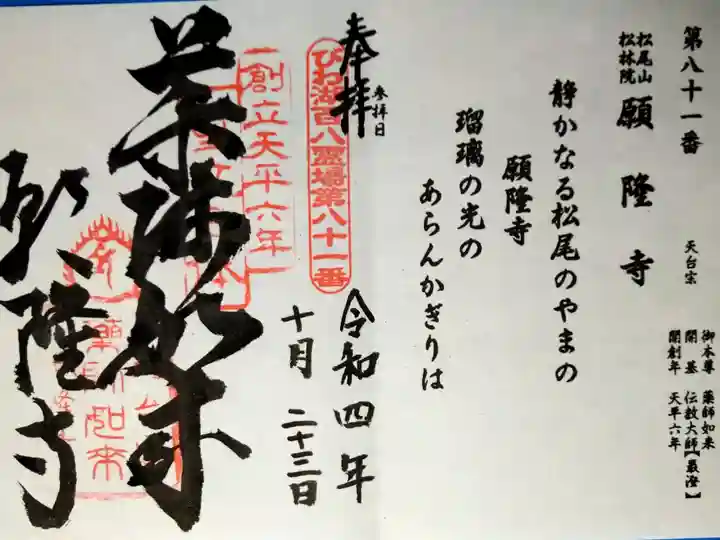 第八十一番
天台宗
松尾山
松林院
願隆寺
御本尊 薬師如来
開基 伝教大師【最澄】
開創年 天平六年
静かなる松尾のやまの
願隆寺
瑠璃の光の
あらんかぎりは
奉拝
参拝日
令和四年
十月二十三日
びわ湖百八霊場第八十一番
創立天平六年
薬師如来
願隆寺
薬師如来